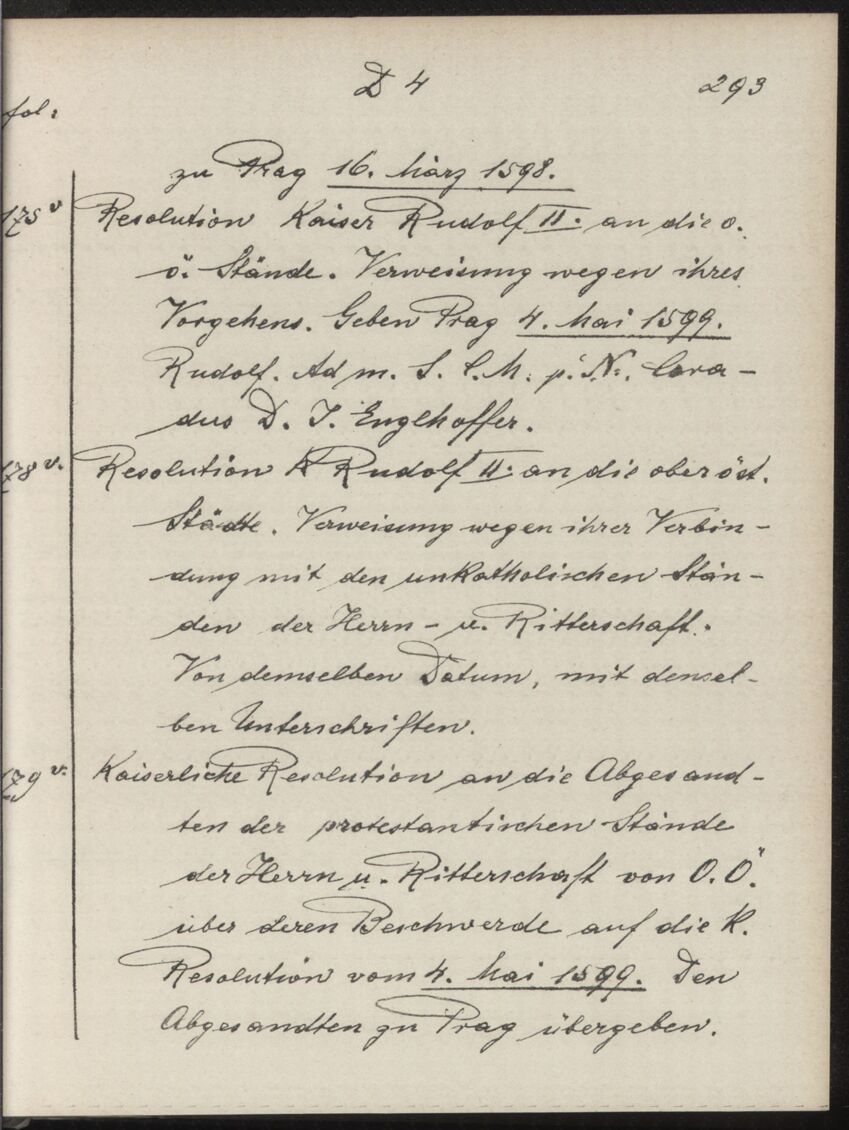 D 4 293
fol:
zu Prag 16. März 1598.
175 v Resolution Kaiser Rudolf II. an die o.
ö. Stände. Verweisung wegen ihres
Vorgehens. Geben Prag 4. Mai 1599.
Rudolf. Ad m. S. C. M. p. N. Cora-
dus D. J. Englhoffer.
178 v. Resolution K Rudolf II. an die oberöst.
Städte. Verweisung wegen ihrer Verbin-
dung mit den unkatholischen Stän-
den der Herrn- u. Ritterschaft.
Von demselben Datum, mit densel-
ben Unterschriften.
179 v. Kaiserliche Resolution an die Abgesand-
ten der protestantischen Stände
der Herrn u. Ritterschaft von O. Ö.
über deren Beschwerde auf die K.
Resolution vom 4. Mai 1599. Den
Abgesandten zu Prag übergeben.